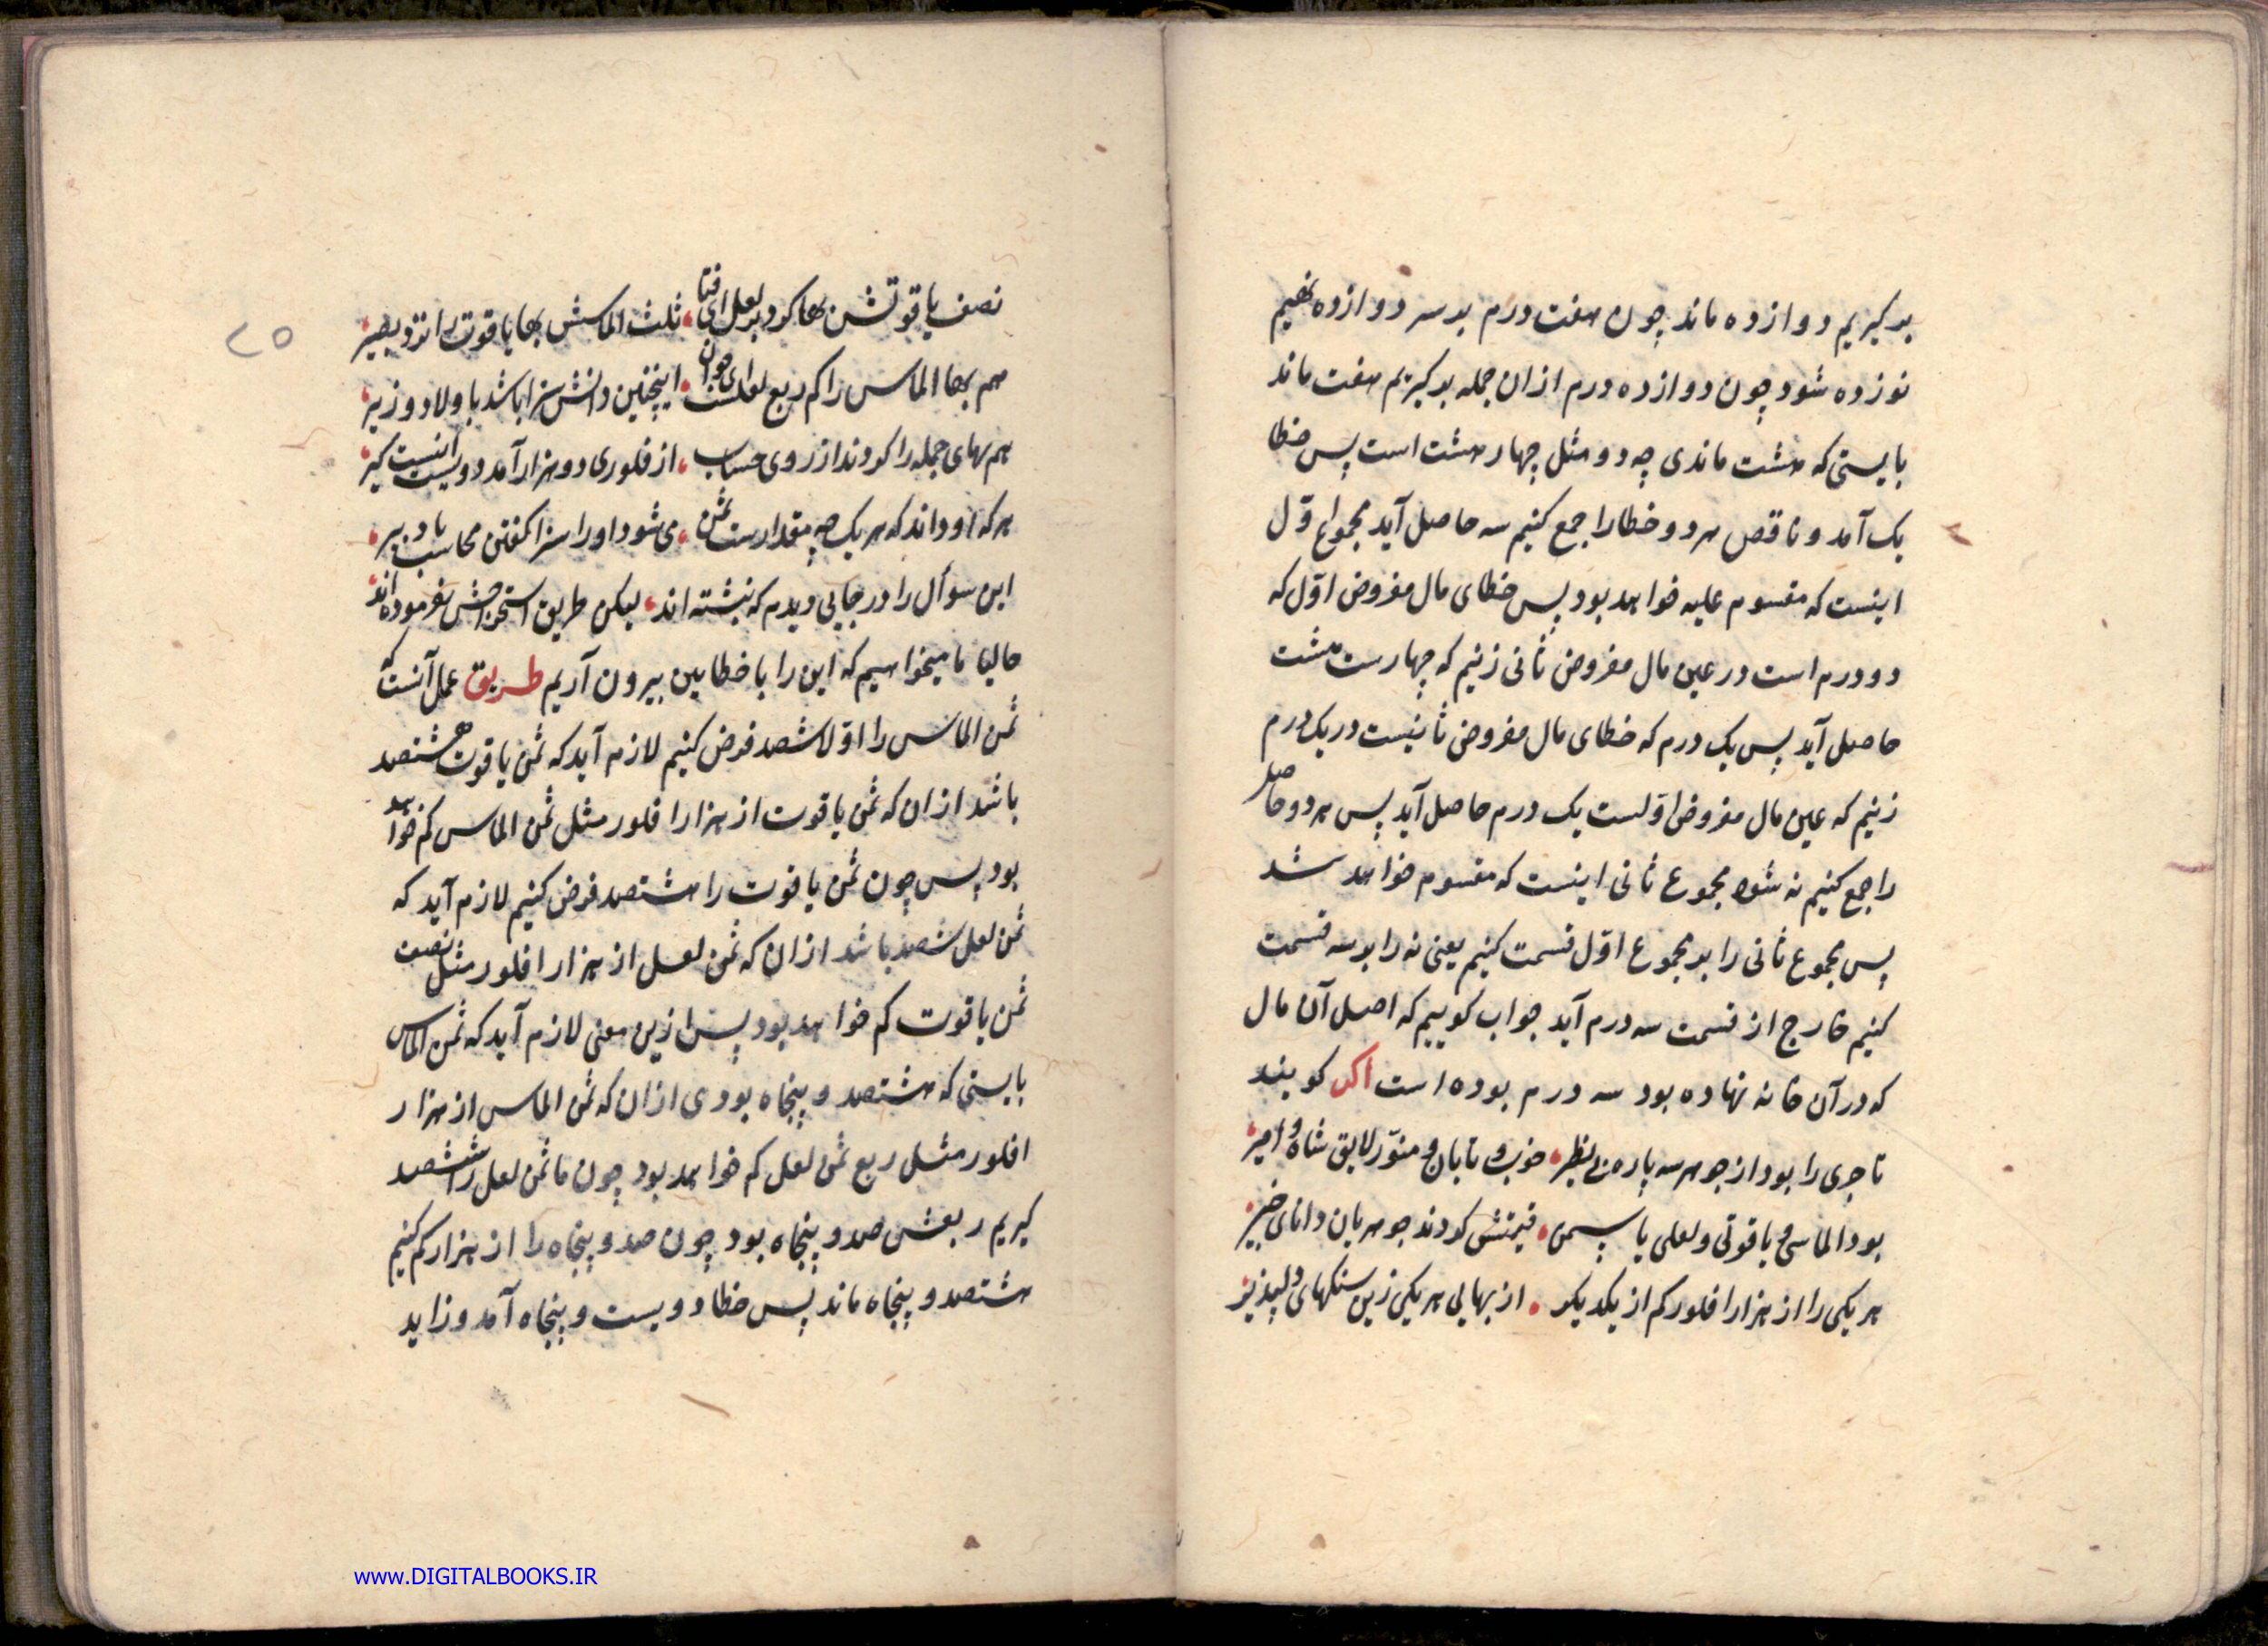 بر کیریم دوازده ماند چون هفت درم بر سر دوازده نهیم
نوزده شود چون دوازده درم ازان جمله بر کیریم هفت ماند
بایستی که هشت ماندی چه دو مثل چهار هشت است پس خطا
یک آمد و ناقص هر دو خطا را جمع کنیم سه حاصل آید مجموع اول
اینست که مقسوم علیه خواهد بود پس خطای مال مفروض اول که
دو درم است در عین مال مفروض ثانی زنیم که چهارست هشت
حاصل آید پس یک درم که خطای مال مفروض ثانیست در یک درم
زنیم که عین مال مفروض اولست یک درم حاصل آید پس هر دو حاصل
را جمع کنیم نه شود مجموع ثانی اینست که مقسوم خواهد شد
پس مجموع ثانی را بر مجموع اول قسمت کنیم یعنی نه را بر سه قسمت
کنیم خارج از قسمت سه درم آید جواب کوییم که اصل آن مال
که در آن خانه نهاده بود سه درم بوده است اکر کویند
تاجری را بود از جوهر سه پاره بی نظیر خوب و تابان و منور لایق شاه و امیر
بود الماسی و یاقوتی و لعلی یا سمی قیمتش کردند جوهریان دانای خبیر
هر یکی را از هزار افلور کم از یکدیکر از بهایی هر یکی زین سنکهای دلپذیر
۲۵
نصف یاقوتش بها کرد بر لعل ای فتا ثلث الماسش بها یاقوت را نزد بصیر
هم بها الماس را کم ربع لعلست ای جوان اینچنین دانش سزا باشد باولاد وزیر
هم بهای جمله را کردند از روی حساب از فلوری دو هزار آمد دویست اینست کیر
هر که او داند که هر یک چه مقدارست ثمن می شود او را سزا کفتن محاسب یا دبیر
این سوأل را در جایی دیدم که نبشته اند لیکن طریق استخراجش نفرموده اند
حالیا ما میخواهیم که این را با خطایین بیرون آریم طریق عمل آنست که
ثمن الماس را اولا ششصد فرض کنیم لازم آید که ثمن یاقوت هشتصد
باشد ازان که ثمن یاقوت از هزار افلور مثل ثمن الماس کم خواهد
بود پس چون ثمن یاقوت را هشتصد فرض کنیم لازم آید که
ثمن لعل ششصد باشد ازان که ثمن لعل از هزار افلور مثل نصف
ثمن یاقوت کم خواهد بود پس ازین معنی لازم آید که ثمن الماس
بایستی که هشتصد و پنجاه بودی ازان که ثمن الماس از هزار
افلور مثل ربع ثمن لعل کم خواهد بود چون ما ثمن لعل را ششصد
کیریم ربعش صد و پنجاه بود چون صد و پنجاه را از هزار کم کنیم
هشتصد و پنجاه ماند پس خطا دویست و پنجاه آمد و زاید
www.DIGITALBOOKS.IR